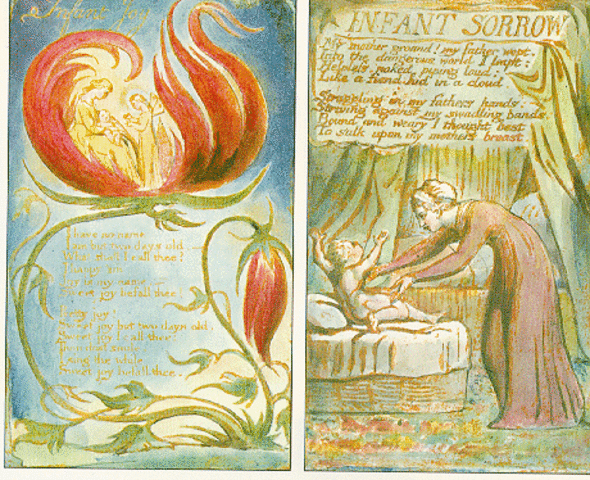 Infant Joy
I have no name
I am but two days old.—
What shall I call thee?
I happy am
Joy is my name.—
Sweet joy befall thee!
Pretty joy!
Sweet joy but two days old,
Sweet joy I call thee:
Thou dost smile.
I sing the while
Sweet joy befall thee.
INFANT SORROW
My mother groand! my father wept.
Into the dangerous world I leapt:
Helpless, naked, piping loud:
Like a fiend hid in a cloud.
Struggling in my fathers hands:
Striving against my swadling bands:
Bound and weary I thought best
To sulk upon my mothers breast.